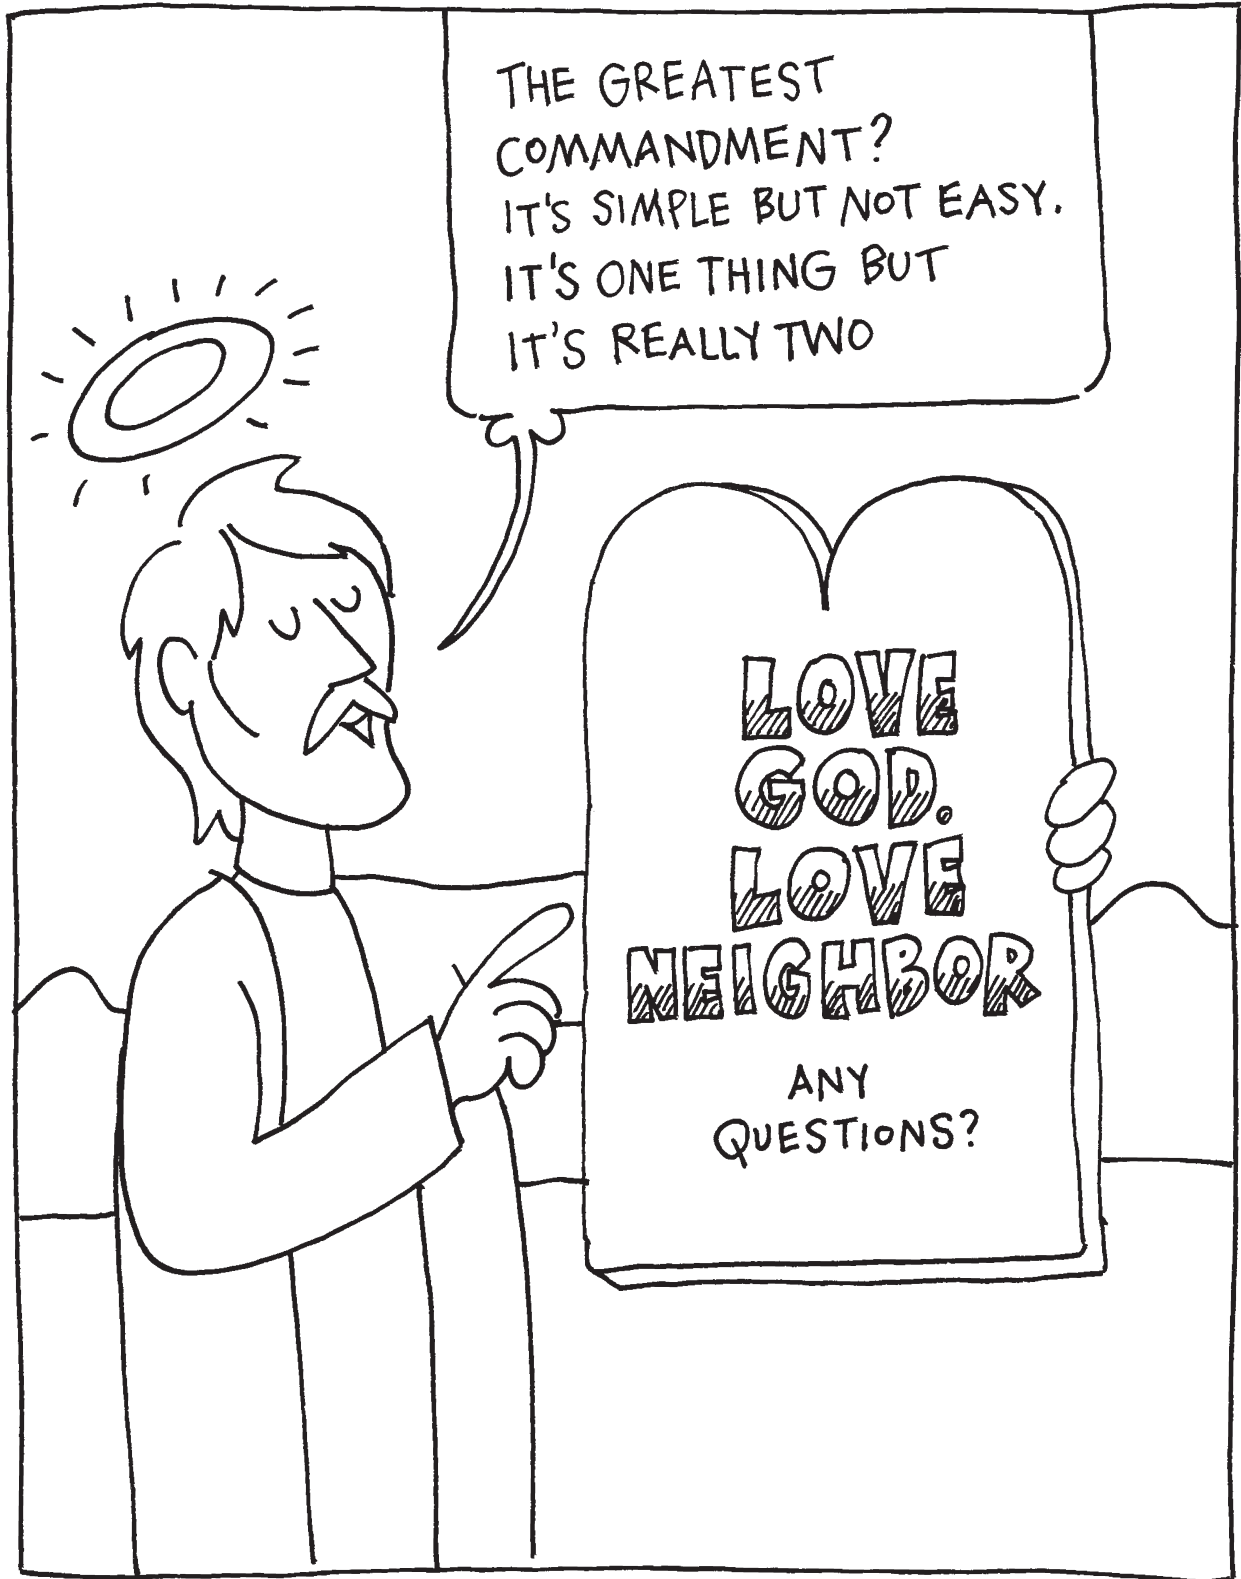 THE GREATEST
COMMANDMENT?
IT'S SIMPLE BUT NOT EASY.
IT'S ONE THING BUT
IT'S REALLY TWO
LOVE
GOD.
LOVE
NEIGHBOR
ANY
QUESTIONS?